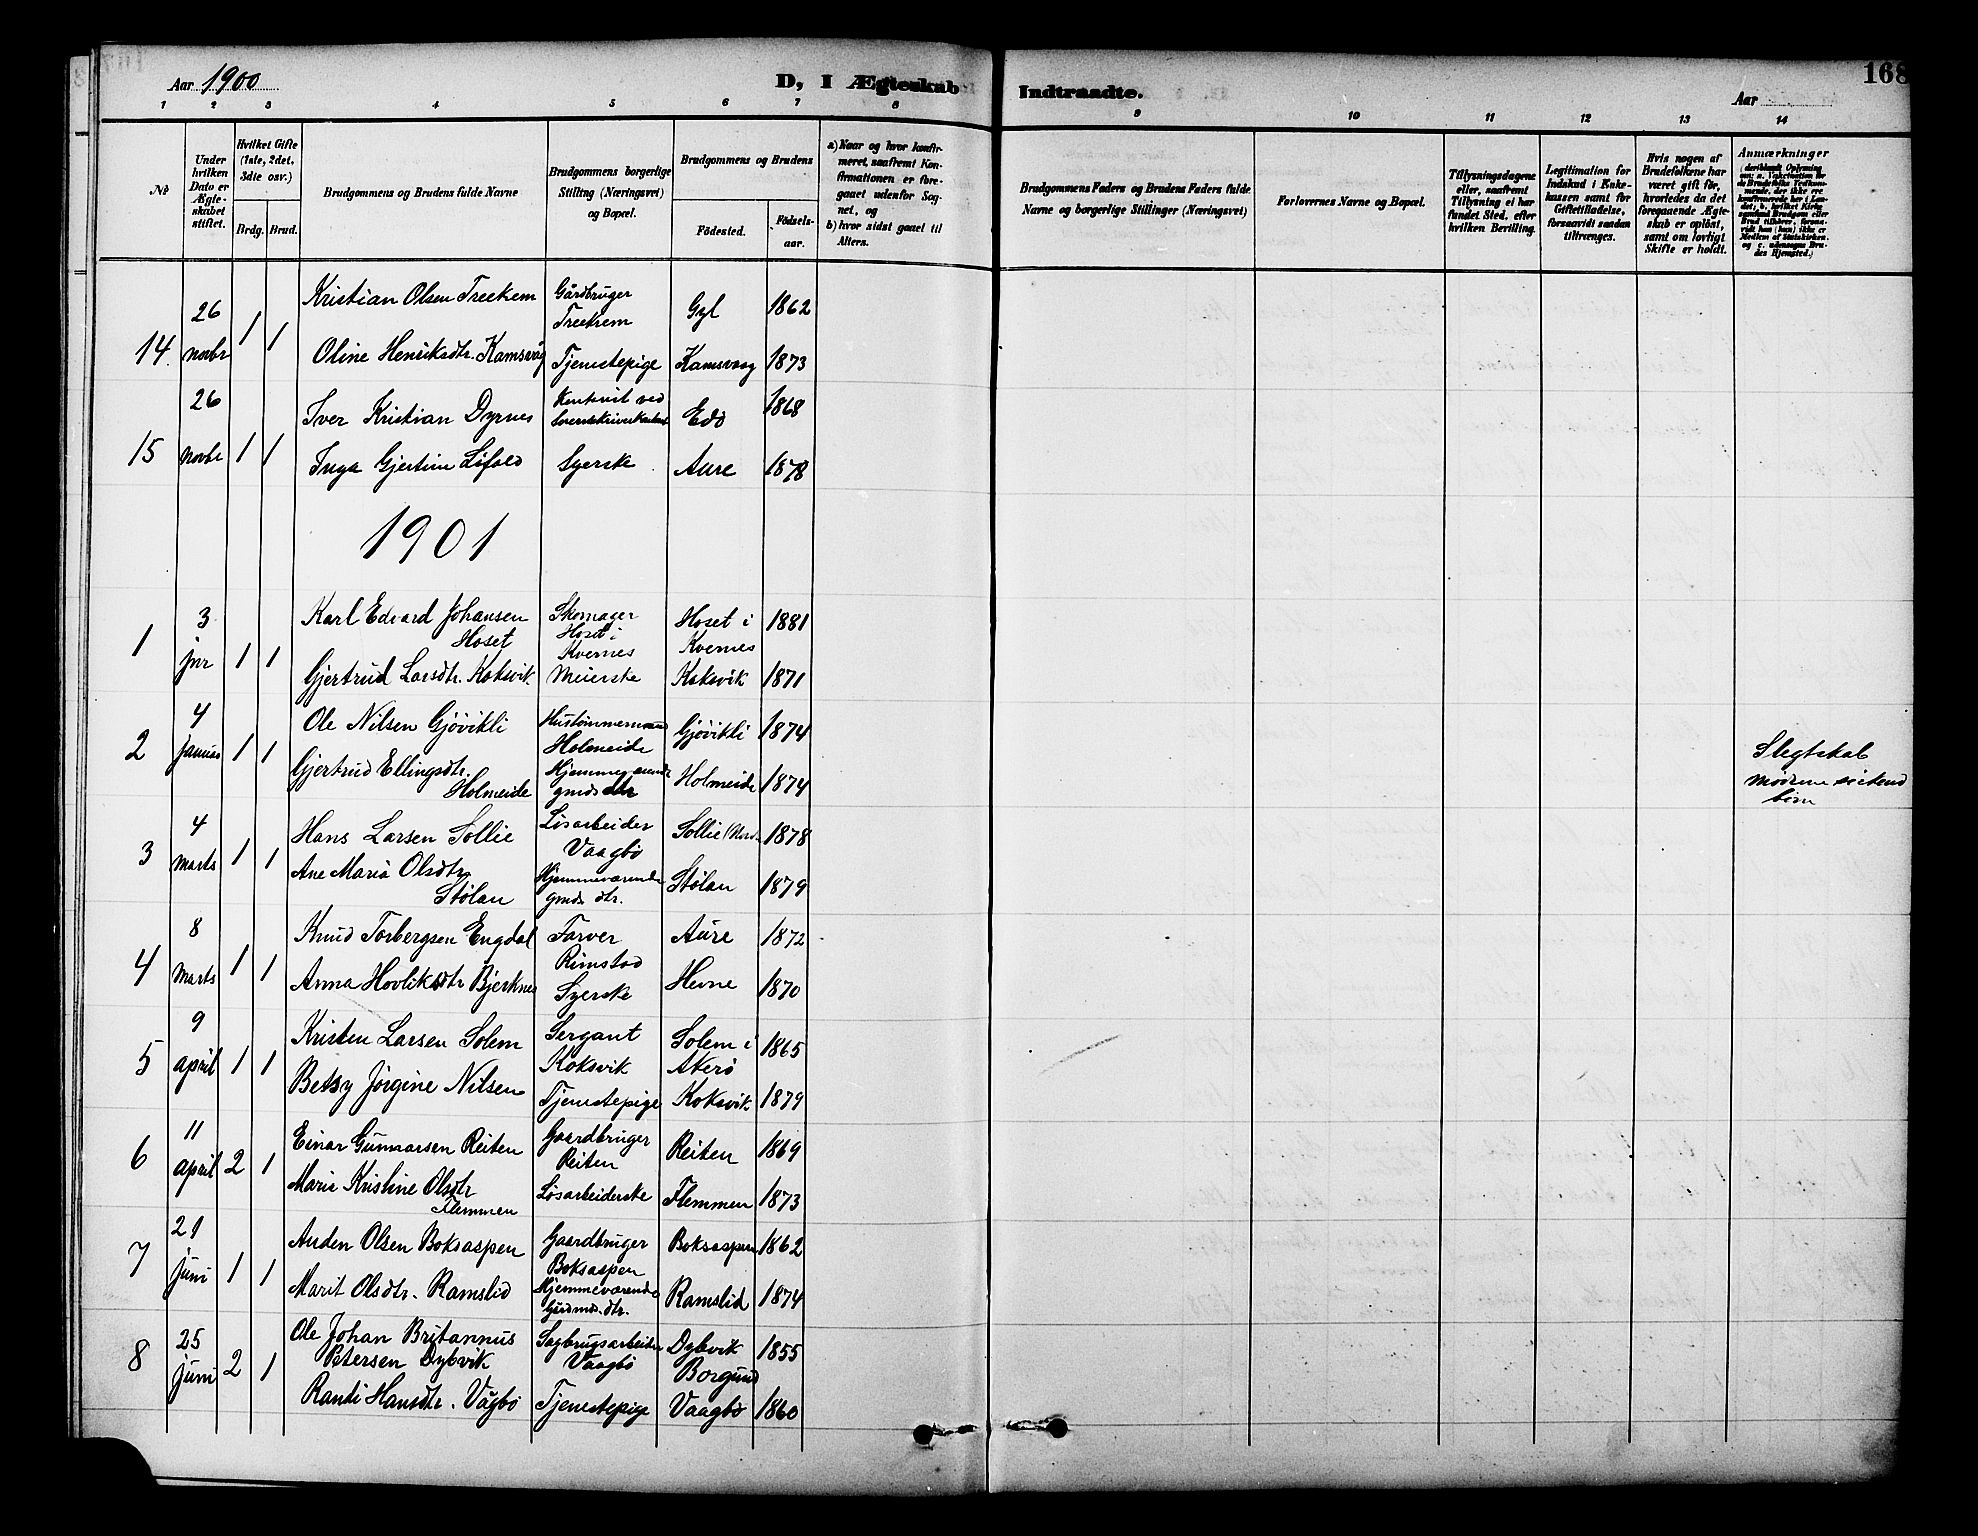 Aar 1900
D, I Ægteskab Indtraadte.
Aar
168
1 2 3 4 5 6 7 8 9 10 11 12 13 14
No
Under hvilken Dato er Ægteskabet stiftet.
Hvilket Gifte (1ste, 2det, 3die osv.)
Brdg. Brud.
Brudgommens og Brudens fulde Navne
Brudgommens borgerlige Stilling (Næringsvei) og Bopæl.
Brudgommens og Brudens
Födested.
Födselsaar.
a) Naar og hvor konfirmeret, saafremt Konfirmationen er foregaaet udenfor Sognet, og
b) hvor sidst gaaet til Alters.
Brudgommens Faders og Brudens Faders fulde Navne og borgerlige Stillinger (Næringsvei)
Forlovernes Navne og Bopæl.
Tillysningsdagene eller, saafremt Tillysning ei har fundet Sted, efter hvilken Bevilling.
Legitimation for Indskud i Enkekassen samt for Giftetilladelse, forsaavidt saadan tiltrænges.
Hvis nogen af Brudefolkene har været gift för, hvorledes da det foregaaende Ægteskab er oplöst, samt om lovligt Skifte er holdt.
Anmærkninger
14 26 novbr 1 1
Kristian Olsen Treekrem Gårdbruger Treekrem Gyl 1862
Oline Henriksdtr. Kamsvåg Tjenestepige Kamsvaag 1873
15 26 novbr 1 1
Iver Kristian Dyrnes Kontorist ved Edö 1868
Inga Gjertine Lifold Syerske Aure 1878
1901
1 3 jnr 1 1
Karl Edvard Johansen Hoset Skomager Hoset i Kvernes Hoset i Kvernes 1881
Gjertrud Larsdtr. Koksvik Meierske Koksvik 1871
2 4 januar 1 1
Ole Nilsen Gjövikli Hustömmermand Holmeide Gjövikli 1874
Gjertrud Ellingsdtr. Holmeide Hjemmeværende gmds dtr Holmeide 1874
Slegtskab
mödrene söskend
börn
3 4 marts 1 1
Hans Larsen Sollie Lösarbeider Vaagbö Sollie (Nord 1878
Ane Maria Olsdtr Stölan Hjemmeværende gmds dtr. Stölan 1879
4 8 marts 1 1
Knud Torbergsen Engdal Farver Rimstad Aure 1872
Anna Hovliksdtr Bjerknes Syerske Hevne 1870
5 9 april 1 1
Kristen Larsen Solem Sergant Koksvik Solem i Akerö 1865
Betsy Jörgine Nilsen Tjenestepige Koksvik 1879
6 11 april 2 1
Einar Gunnarsen Reiten Gaardbruger Reiten Reiten 1869
Marie Kristine Olsdtr Flemmen Lösarbeiderske Flemmen 1873
7 21 juni 1 1
Anden Olsen Boksaspen Gaardbruger Boksaspen Boksaspen 1862
Marit Olsdtr. Ramslid Hjemmeværende Gårdmds. dtr. Ramslid 1874
8 25 juni 2 1
Ole Johan Britannus Petersen Dybvik Sagbrugsarbeider Vaagbö Dybvik Borgund 1855
Randi Hansdtr. Vågbö Tjenestepige Vaagbö 1860